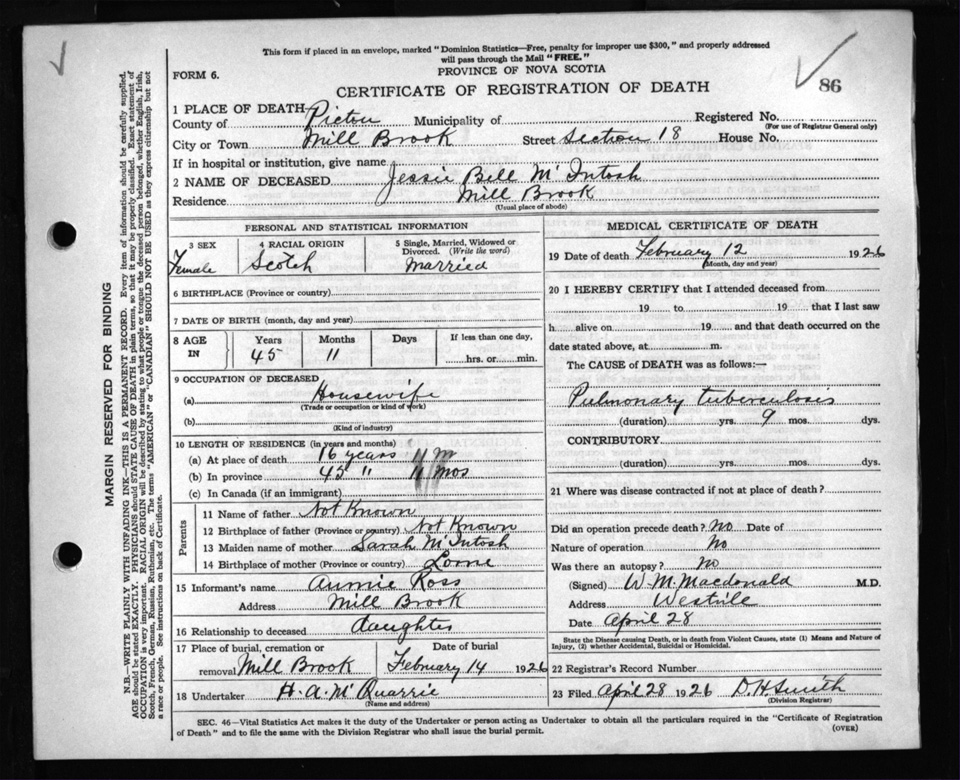 This form if placed in an envelope, marked "Dominion Statistics—Free, penalty for improper use $300," and properly addressed
will pass through the Mail "FREE."
FORM 6.
PROVINCE OF NOVA SCOTIA
CERTIFICATE OF REGISTRATION OF DEATH
86
1 PLACE OF DEATH
County of Pictou Municipality of Registered No.
(For use of Registrar General only)
City or Town Mill Brook Street Section 18 House No.
If in hospital or institution, give name
2 NAME OF DECEASED Jessie Bell McIntosh
Residence Mill Brook
(Usual place of abode)
PERSONAL AND STATISTICAL INFORMATION
3 SEX Female
4 RACIAL ORIGIN Scotch
5 Single, Married, Widowed or Divorced. (Write the word) Married
6 BIRTHPLACE (Province or country)
7 DATE OF BIRTH (month, day and year)
8 AGE IN
Years 45
Months 11
Days
If less than one day,
hrs. or min.
9 OCCUPATION OF DECEASED
(a) Housewife
(Trade or occupation or kind of work)
(b)
(Kind of industry)
10 LENGTH OF RESIDENCE (in years and months)
(a) At place of death 16 years 11 m
(b) In province 45 " 11 mos
(c) In Canada (if an immigrant)
Parents
11 Name of father Not Known
12 Birthplace of father (Province or country) Not Known
13 Maiden name of mother Sarah McIntosh
14 Birthplace of mother (Province or country) Lorne
15 Informant's name Annie Ross
Address Mill Brook
16 Relationship to deceased daughter
17 Place of burial, cremation or removal Mill Brook
Date of burial February 14 1926
18 Undertaker H. A. McQuarrie
(Name and address)
MEDICAL CERTIFICATE OF DEATH
19 Date of death February 12 1926
(Month, day and year)
20 I HEREBY CERTIFY that I attended deceased from
19 to 19 that I last saw
h alive on 19 and that death occurred on the
date stated above, at m.
The CAUSE OF DEATH was as follows:—
Pulmonary tuberculosis
(duration) yrs. 9 mos. dys.
CONTRIBUTORY
(duration) yrs. mos. dys.
21 Where was disease contracted if not at place of death?
Did an operation precede death? No Date of
Nature of operation No
Was there an autopsy? No
(Signed) W. M. Macdonald M.D.
Address Westville
Date April 28
State the Disease causing Death, or in death from Violent Causes, state (1) Means and Nature of
Injury, (2) whether Accidental, Suicidal or Homicidal.
22 Registrar's Record Number
23 Filed April 28 1926 D. H Smith
(Division Registrar)
SEC. 46—Vital Statistics Act makes it the duty of the Undertaker or person acting as Undertaker to obtain all the particulars required in the "Certificate of Registration
of Death" and to file the same with the Division Registrar who shall issue the burial permit.
(OVER)
MARGIN RESERVED FOR BINDING
N.B.—WRITE PLAINLY WITH UNFADING INK—THIS IS A PERMANENT RECORD. Every item of information should be carefully supplied.
AGE should be stated EXACTLY. PHYSICIANS should STATE CAUSE OF DEATH in plain terms, so that it may be properly classified. Exact statement of
OCCUPATION is very important. RACIAL ORIGIN will be described by stating to what people or tongue the deceased person belonged, whether English, Irish,
Scotch, French, German, Russian, Ruthenian, etc. The terms "AMERICAN" or "CANADIAN" SHOULD NOT BE USED as they express citizenship but not
a race or people. See instructions on back of Certificate.